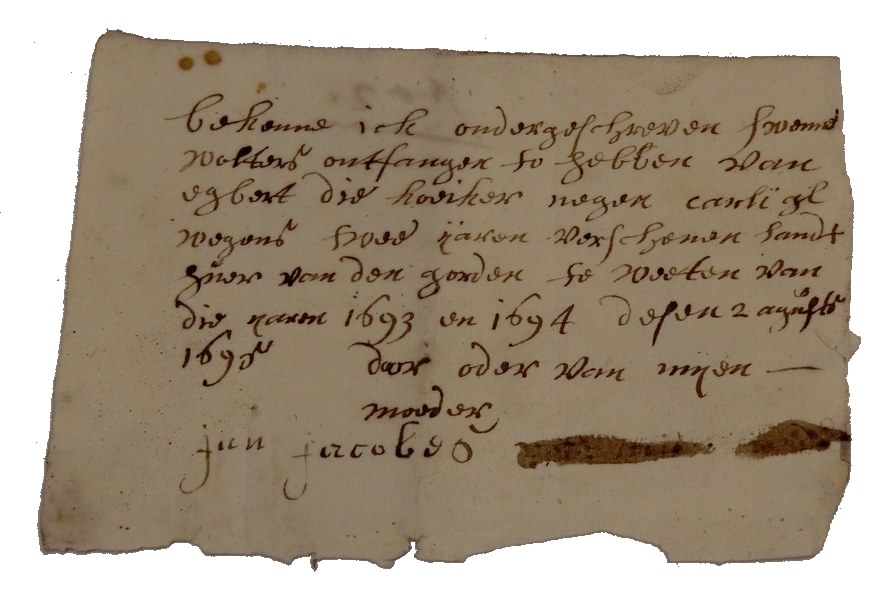 bekenne ick ondergeschreven swenne
wolters ontfangen to hebben van
egbert die koeiker negen carli gl
wegens twee ijaren verschenen landt
huer van den gorden te weeten van
die ijaren 1693 en 1694 desen 2 agusts
1695 door oder van mijen —
moeder
jan jacobes